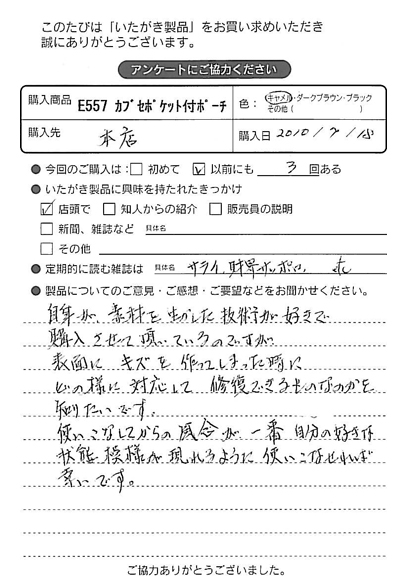 このたびは「いたがき製品」をお買い求めいただき
誠にありがとうございます。
アンケートにご協力ください
購入商品 E557 カブセポケット付ポーチ 色： キャメル・ダークブラウン・ブラック
その他（ ）
購入先 本店 購入日 2010/7/
● 今回のご購入は： □ 初めて ☑ 以前にも 3 回ある
● いたがき製品に興味を持たれたきっかけ
☑ 店頭で □ 知人からの紹介 □ 販売員の説明
□ 新聞、雑誌など 具体名
□ その他
● 定期的に読む雑誌は 具体名 サライ、財界サッポロ、
● 製品についてのご意見・ご感想・ご要望などをお聞かせください。
自身が、素材を生かした技術が好きで
購入させて頂いているのですが、
表面に キズを作ってしまった時に
どの様に対応して 修復できるものなのかを
知りたいです。
使いこなしてからの風合が一番自分の好きな
状態、模様が現れるように使いこなせれば
幸いです。
ご協力ありがとうございました。